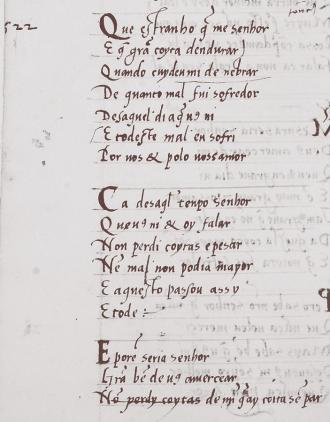 522
Que estranho q̃ me senhor
E q̃ grã coyta dendurar
Quando cuydeu mi de nebrar
De quanto mal fui sofredor
Desaquel di aq̃ uꝯ ui
E todeste mal eu sofri
Por uos & polo uoss amor
Ca desaql̃ tenpo senhor
Que uꝯ ui & oy falar
Non perdi coytas e pesar
Nẽ mal non podia mayor
E aquesto passou assy
E tode :~
E por ẽ seria senhor
Grã bẽ de uꝯ amercear
Nõ perdy coytas de mĩ q̃ ay coita sẽ par